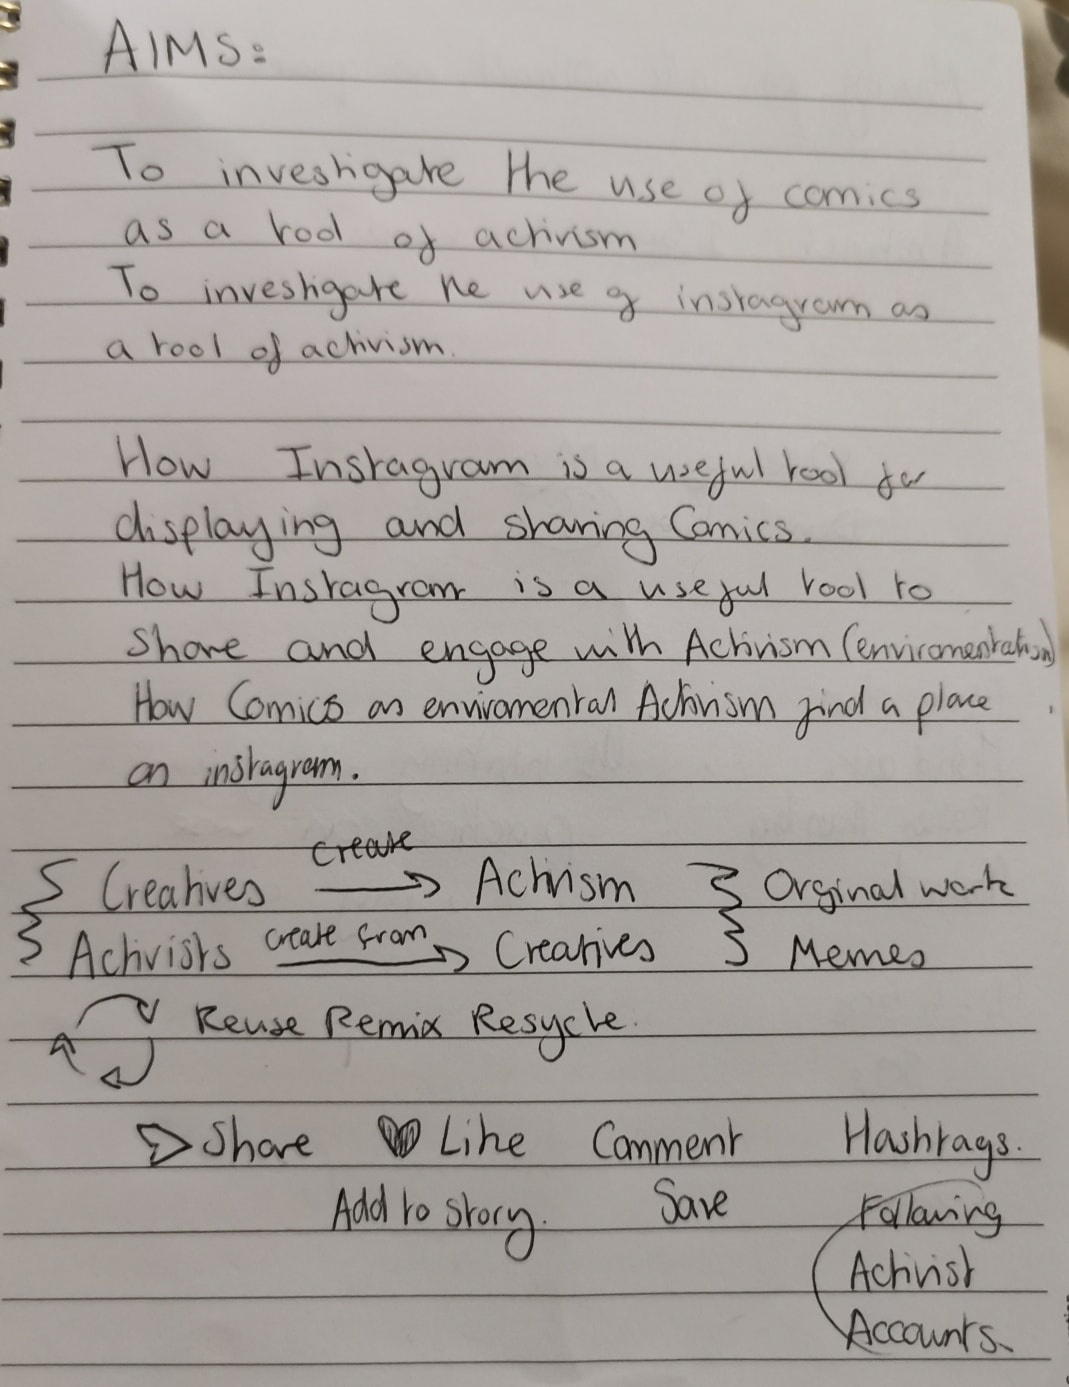 AIMS:
To investigate the use of comics
as a tool of activism
To investigate the use of instagram as
a tool of activism.
How Instagram is a useful tool for
displaying and sharing Comics.
How Instagram is a useful tool to
share and engage with Activism (enviromentalism)
How Comics on enviromental Activism find a place
on instagram.
Creatives create Activism Orginal work
Activists create from Creatives Memes
Reuse Remix Resycle.
Share Like Comment Hashtags.
Add to story. Save Following
Activist
Accounts.